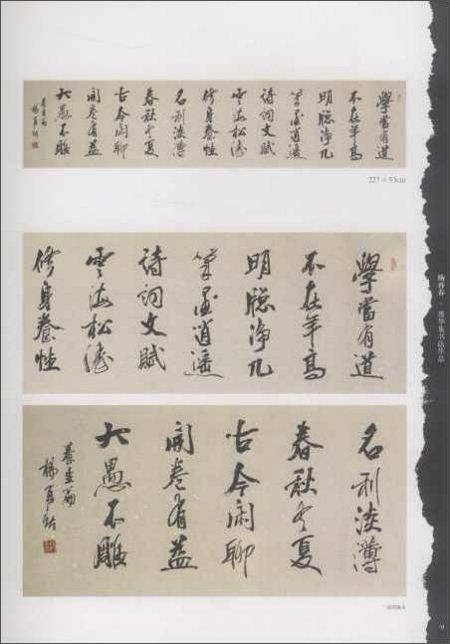 學當有道
不在年高
明聰淨几
筆墨逍遥
詩詞文賦
雲海松濤
修身養性
名利淡薄
春秋冬夏
古今閑聊
開卷有益
大愚不雕
養生篇
223×53cm
學當有道
不在年高
明聰淨几
筆墨逍遥
詩詞文賦
雲海松濤
修身養性
名利淡薄
春秋冬夏
古今閑聊
開卷有益
大愚不雕
養生篇